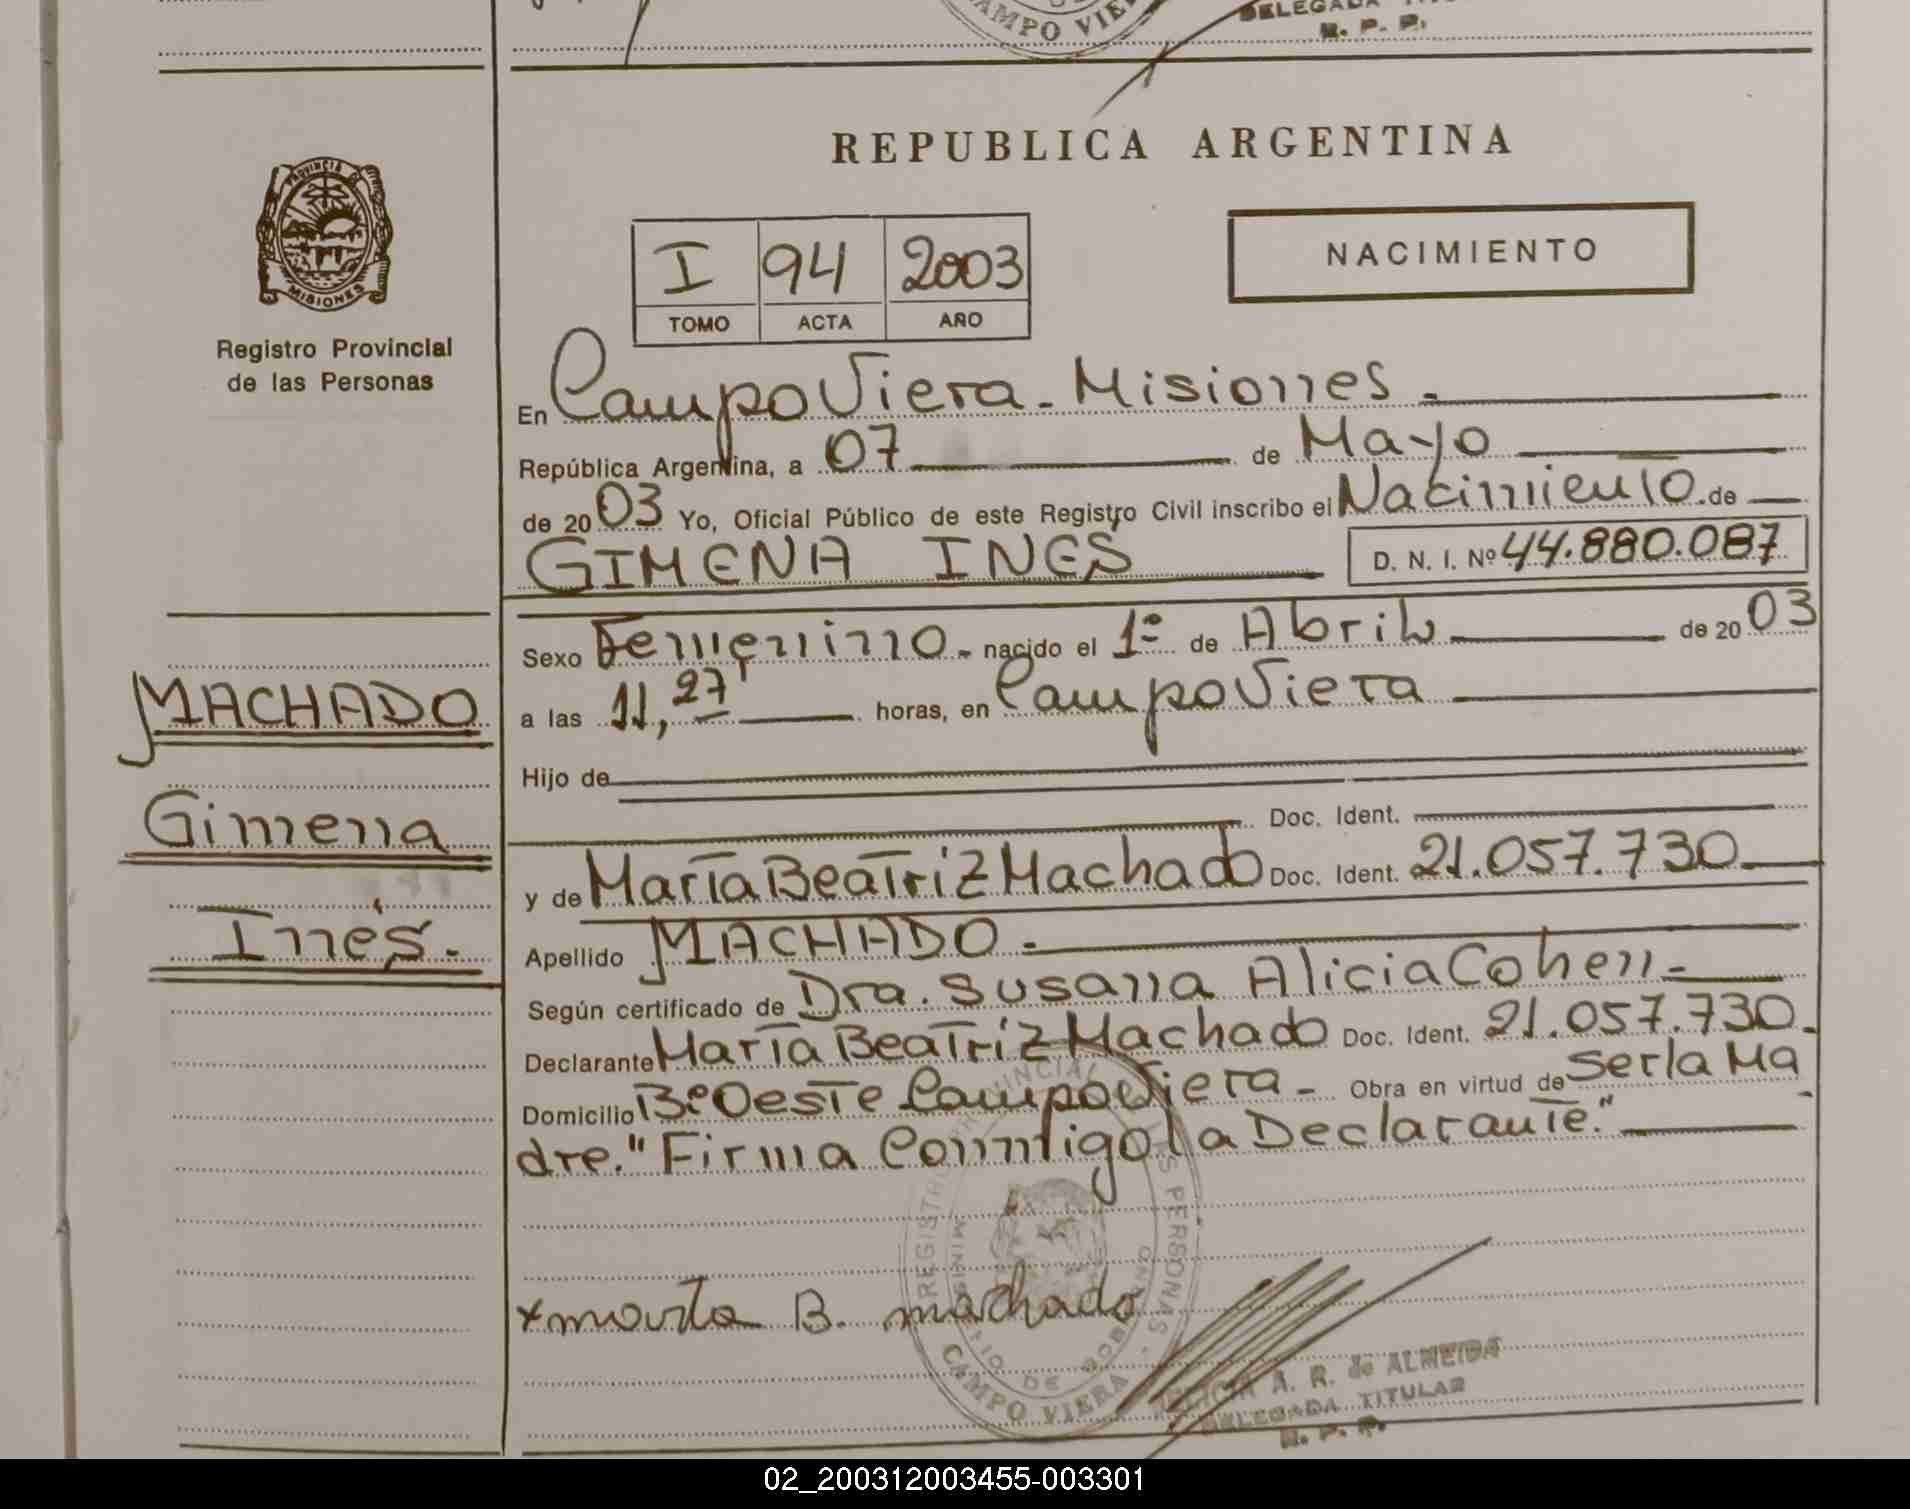 DELEGADA
R. P. P.
CAMPO VIERA
REPUBLICA ARGENTINA
PROVINCIA DE
MISIONES
Registro Provincial
de las Personas
I 94 2003
TOMO ACTA AÑO
NACIMIENTO
En Campo Viera - Misiones -
República Argentina, a 07 de Mayo
de 2003 Yo, Oficial Público de este Registro Civil inscribo el Nacimiento de
GIMENA INES D. N. I. Nº 44.880.087
Sexo Femenino - nacido el 1º de Abril de 2003
a las 11,27' horas, en Campo Viera
Hijo de
Doc. Ident.
y de María Beatriz Machado Doc. Ident. 21.057.730
Apellido MACHADO -
Según certificado de Dra. Susana Alicia Cohen -
Declarante María Beatriz Machado Doc. Ident. 21.057.730.
Domicilio Bº Oeste Campo Viera - Obra en virtud de Ser la Ma
dre. "Firma Conmigo la Declarante."
MACHADO
Gimena
Inés.
REGISTRO PROVINCIAL DE LAS PERSONAS
MINISTERIO DE GOBIERNO
CAMPO VIERA
x maria B. machado
A. R. de ALMEIDA
DELEGADA TITULAR
R. P. P.
02_200312003455-003301